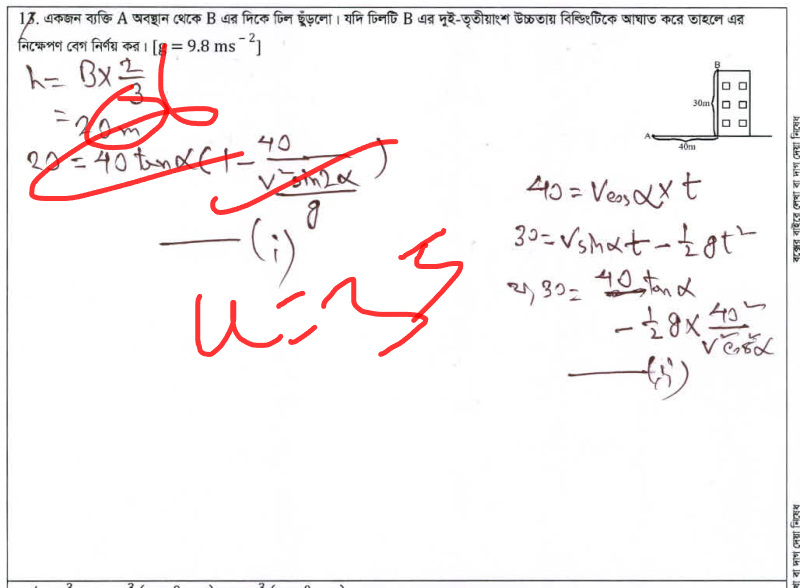 13. একজন ব্যক্তি A অবস্থান থেকে B এর দিকে ঢিল ছুঁড়লো। যদি ঢিলটি B এর দুই-তৃতীয়াংশ উচ্চতায় বিল্ডিংটিকে আঘাত করে তাহলে এর
নিক্ষেপণ বেগ নির্ণয় কর। [g = 9.8 ms⁻²]
h = B × 2/3
= 20m
20 = 40 tanα (1 - 40 / (v² sin2α / g))
——— (i)
u = 25
B
30m
A
40m
40 = v cosα × t
30 = v sinα t - 1/2 gt²
বা, 30 = 40 tanα
- 1/2 g × 40² / v² cos²α
——— (ii)
বক্সের বাইরে লেখা বা দাগ দেয়া নিষেধ